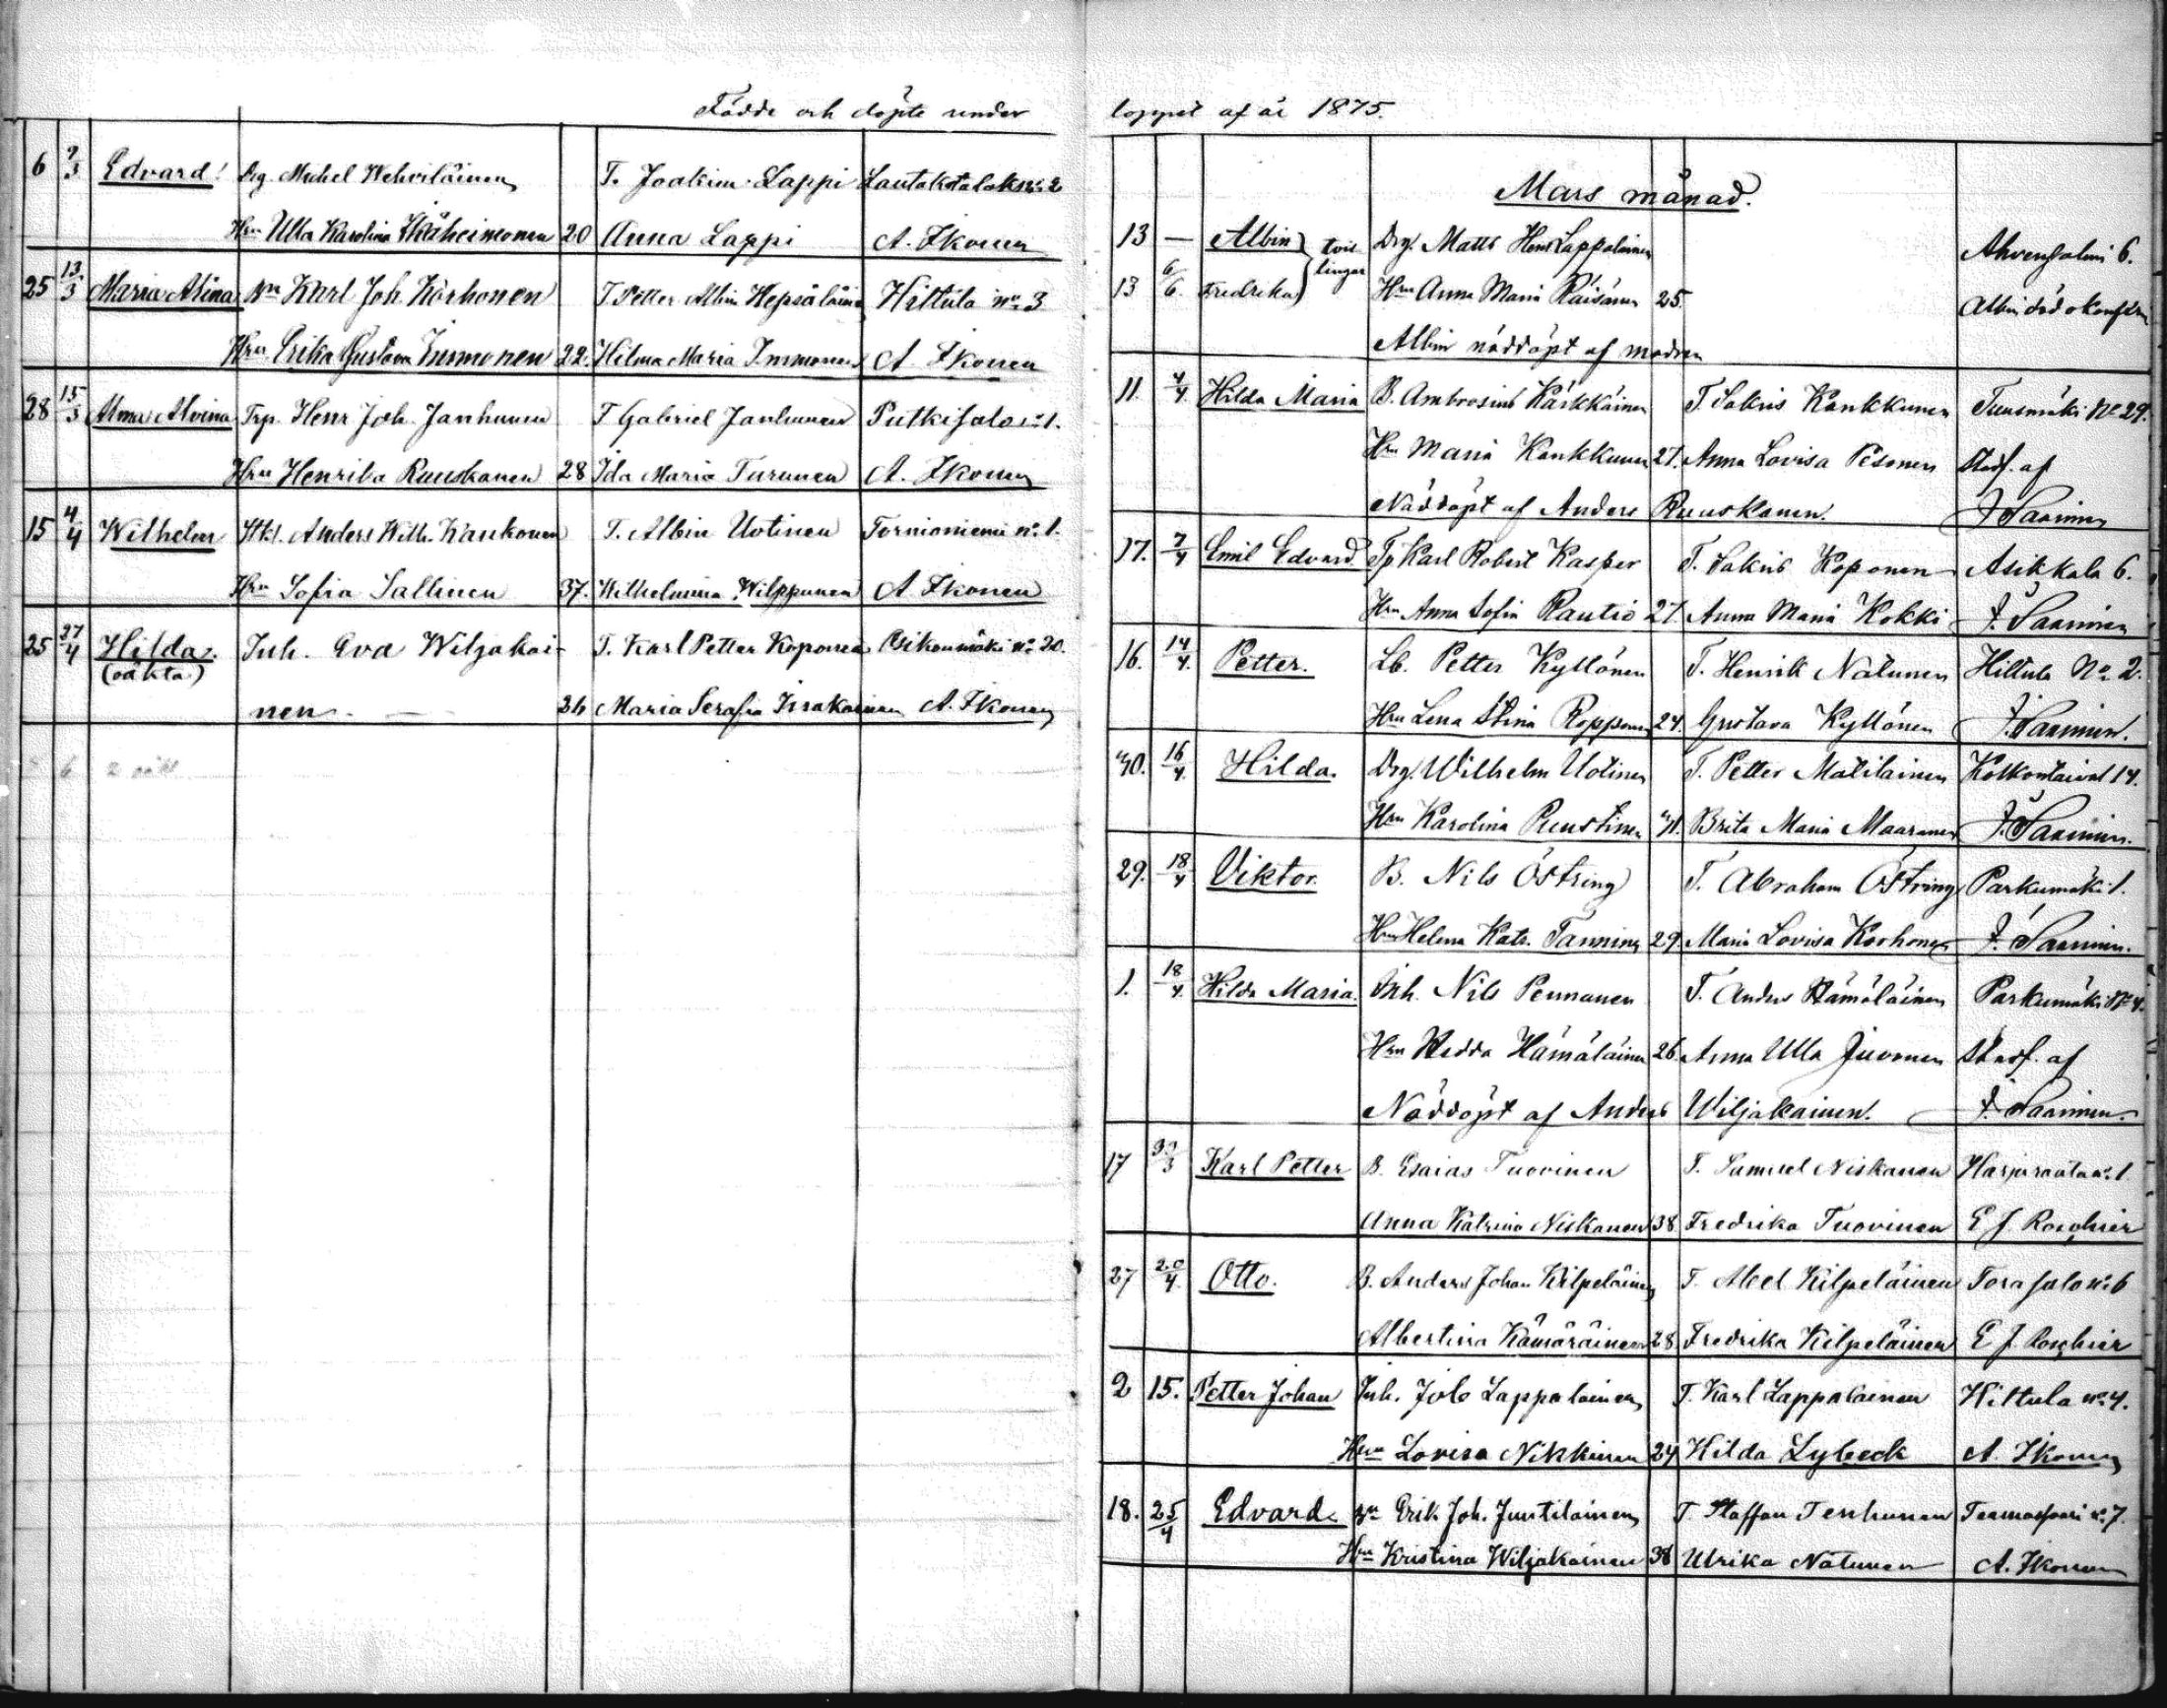 Födde och döpte under loppet af år 1875.
6 7/3 Edvard Drg. Michel Wehviläinen T. Joakim Lappi Lautakotalaks No 2
Hru Ulla Karolina 20 Anna Lappi A. Ikonen
25 13/3 Maria Alina Karl Joh. Korhonen T. Petter Albin Hepsäläinen Hittula no 3
Hru Erika Gustava Immonen 22. Hilma Maria Immonen A. Ikonen
28 15/3 Alma Alvina Trp. Henr Joh. Janhunen T Gabriel Janhunen Putkisalo no 1.
Hru Henrika Ruuskanen 28 Ida Maria Turunen A. Ikonen
15 4/4 Wilhelm Anders Wilh. Kaukonen T. Albin Uotinen Tornioniemi no 1.
Hru Sofia Sallinen 37. Wilhelmina Wilppunen A Ikonen
25 27/4 Hilda. Inh. Eva Wiljakai- T. Karl Petter Koponen Pesikonmäki no 20.
(oäkta)
nen. — 26 Maria Serafia Iivakainen A. Ikonen
6 2 oäkt
Mars månad.
13 — Albin tvil- Drg. Matts Henr Lappalainen Ahvensalmi 6.
13 6/6. Fredrika lingar Hru Anna Maria Räisänen 25. Albin död o konfirm
Albin nöddöpt af modren
11. 4/4 Hilda Maria B. Ambrosius Kärkkäinen T. Sakris Kankkunen Tuusmäki No 29.
Hru Maria Kankkunen 27. Anna Lovisa Pesonen Stadf. af
Nöddöpt af Anders Ruuskanen. J Saarinen
17. 7/4 Emil Edvard Tp Karl Robert Kasper T. Sakris Koponen Asikkala 6.
Hru Anna Sofia Rautio 27. Anna Maria Kokki J. Saarinen
16. 14/4. Petter. Lb. Petter Kyllönen T. Henrik Natunen Hittula No 2.
Hru Lena Stina Ropponen 24. Gustava Kyllönen J. Saarinen.
30. 16/4. Hilda. Drg. Wilhelm Uotinen T. Petter Matilainen Kolkontaival 14.
Hru Karolina Puustinen 41. Brita Maria Maaranen J. Saarinen.
29. 18/4 Viktor. B. Nils Östring T. Abraham Östring Parkumäki 1.
Hru Helena Katr. Tanninen 29. Maria Lovisa Korhonen J. Saarinen.
1. 18/4. Hilda Maria. Inh. Nils Pennanen T. Anders Hämäläinen Parkumäki No 4.
Hru Hedda Hämäläinen 26. Anna Ulla Juvonen Stadf. af
Nöddöpt af Anders Wiljakainen. J. Saarinen.
17 30/3 Karl Petter B. Esaias Tuovinen T. Samuel Niskanen Harjuranta no 1
Anna Katrina Niskanen 38 Fredrika Tuovinen E J. Roschier
27 20/4. Otto. B. Anders Johan Kilpeläinen T. Abel Kilpeläinen Torasalo no 6
Albertina Kämäräinen 28. Fredrika Kilpeläinen E J. Roschier
2 15. Petter Johan Inh. Job Lappalainen T. Karl Lappalainen Hittula no 4.
Hru Lovisa Nikkinen 24 Hilda Lybeck A. Ikonen
18. 25/4 Edvard. Erik Joh. Juntilainen T Staffan Tenhunen no 7.
Hru Kristina Wiljakainen 38 Ulrika Natunen A. Ikonen